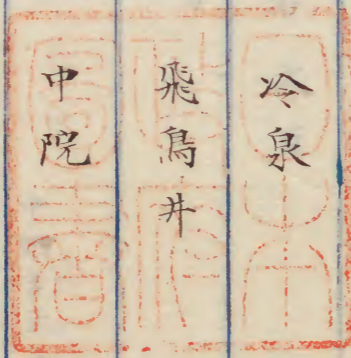 冷泉
飛鳥井
中院